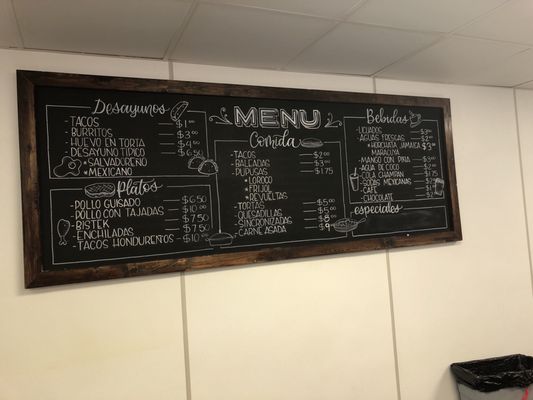 MENU
Desayunos
- TACOS $1 00
- BURRITOS $3 00
- HUEVO EN TORTA $4 00
- DESAYUNO TIPICO $6 50
* SALVADOREÑO
* MEXICANO
Platos
- POLLO GUISADO $6 50
- POLLO CON TAJADAS $10 00
- BISTEK $7 50
- ENCHILADAS $7 50
- TACOS HONDUREÑOS $10
Comida
- TACOS $2
- BALEADAS $3
- PUPUSAS $1.75
* LOROCO
* FRIJOL
* REVUELTAS
- TORTAS $5
- QUESADILLAS $5
- SINCRONIZADAS $8
- CARNE ASADA $9
Bebidas
- LICUADOS $3
- AGUAS FRESCAS $2
* HORCHATA JAMAICA $3
MARACUYA
- MANGO CON PIÑA $3
- AGUA DE COCO $2
- COLA CHAMPAN $1.75
- SODAS MEXICANAS
- CAFE
- CHOCOLATE
especiales